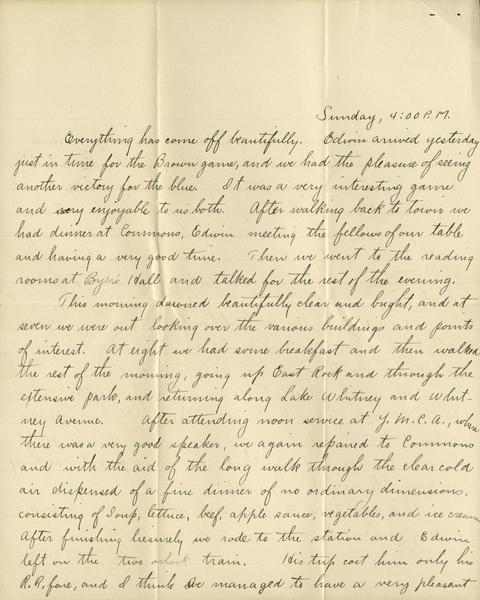 Sunday, 4:00 P.M.
Everything has come off beautifully. Edwin arrived yesterday
just in time for the Brown game, and we had the pleasure of seeing
another victory for the blue. It was a very interesting game
and very enjoyable to us both. After walking back to town we
had dinner at Commons, Edwin meeting the fellows of our table
and having a very good time. Then we went to the reading
rooms at Byers Hall and talked for the rest of the evening.
This morning dawned beautifully clear and bright, and at
seven we were out looking over the various buildings and points
of interest. At eight we had some breakfast and then walked
the rest of the morning, going up East Rock and through the
extensive park, and returning along Lake Whitney and Whit-
ney Avenue. After attending noon service at Y.M.C.A., where
there was a very good speaker, we again repaired to Commons
and with the aid of the long walk through the clear cold
air dispensed of a fine dinner of no ordinary dimensions,
consisting of Soup, lettuce, beef, apple sauce, vegetables, and ice cream.
After finishing liesurely we rode to the station and Edwin
left on the two oclock train. His trip cost him only his
R.R. fare, and I think we managed to have a very pleasant